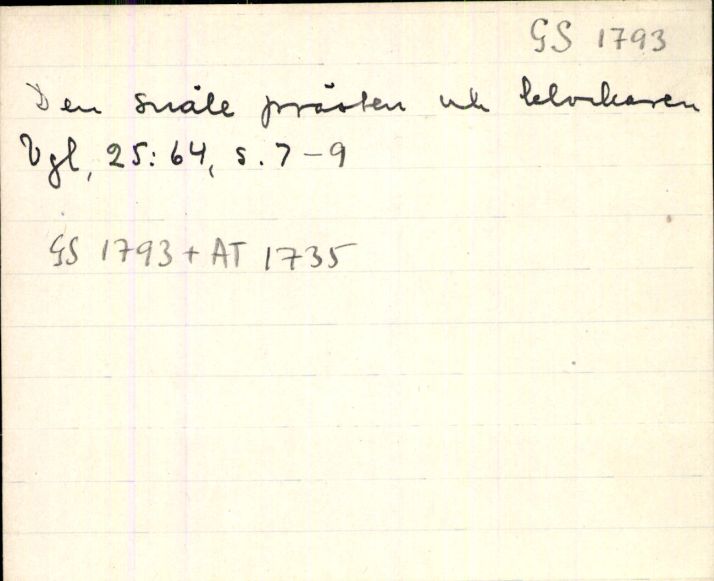 GS 1793
Den snåle prästen och klockaren
Vgl, 25:64, s. 7-9
GS 1793 + AT 1735